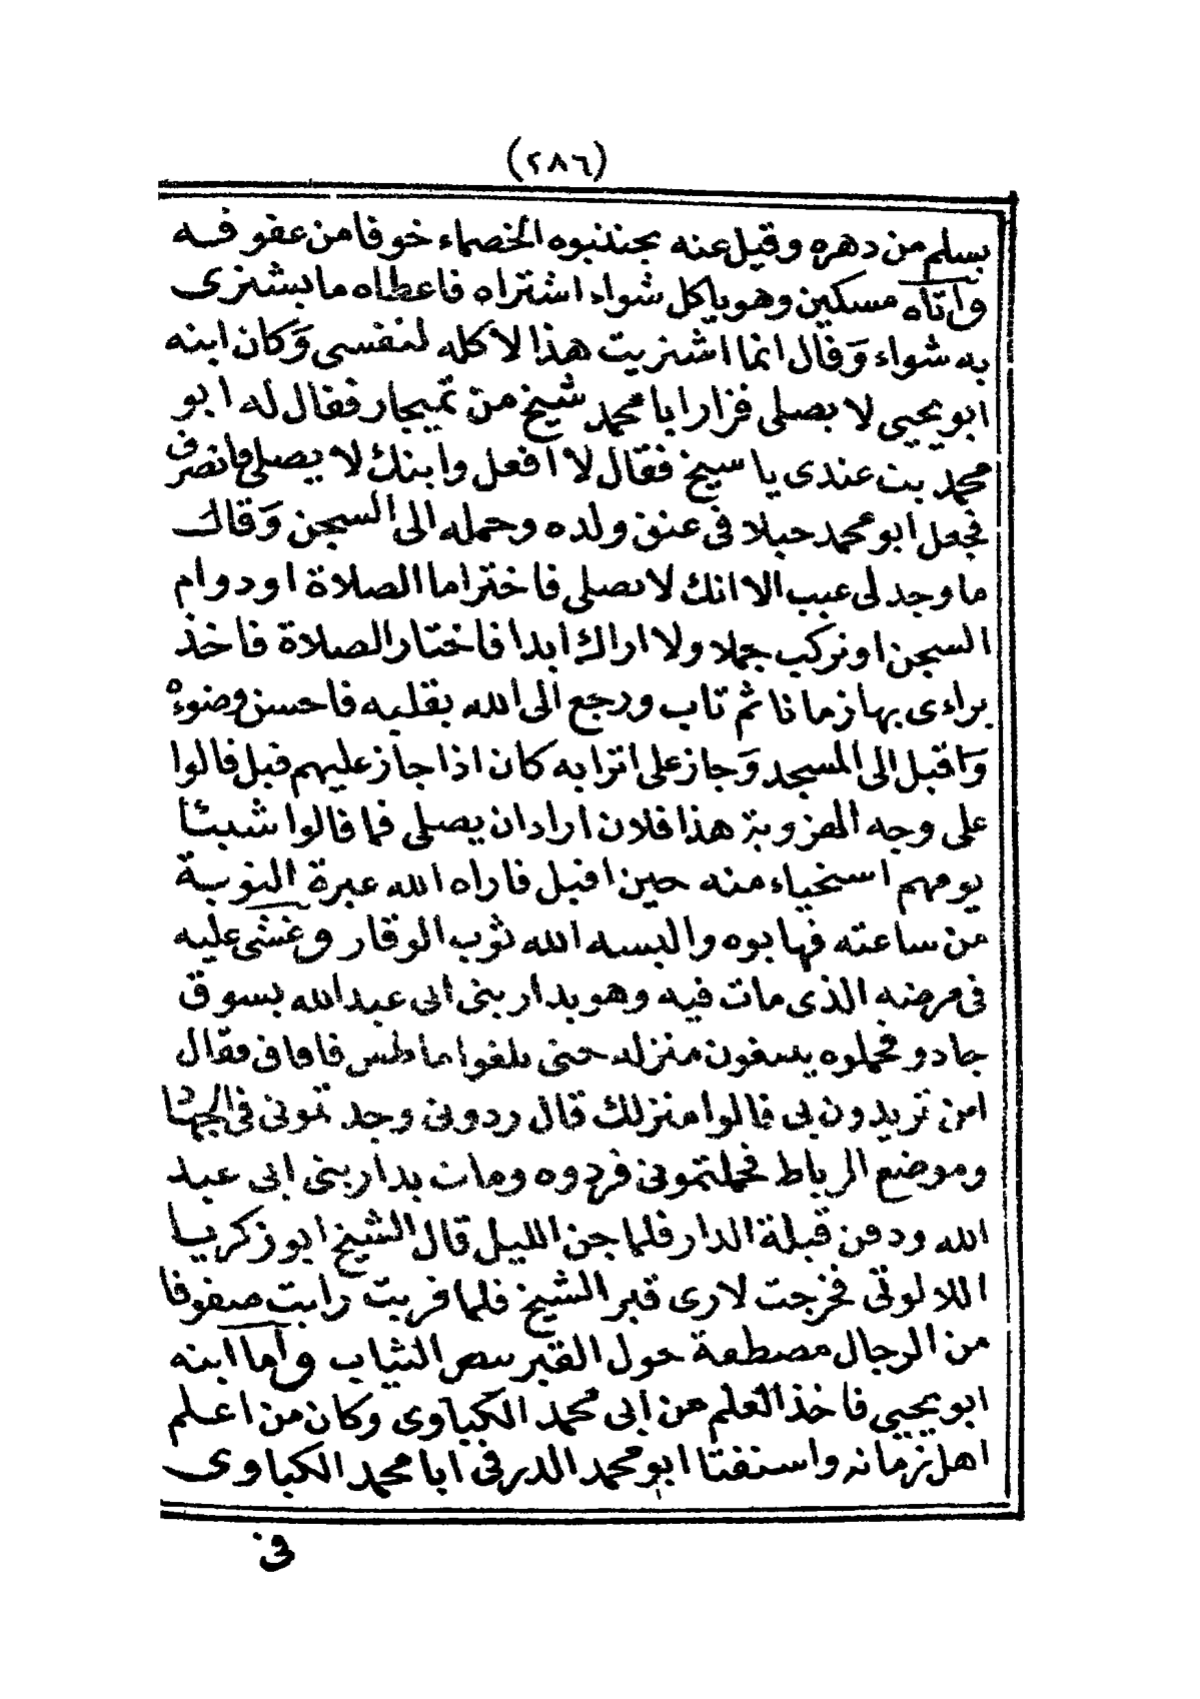 (٢٨٦)
يسلم من دهره وقيل عنه يجتنبوه الخصماء خوفا من عقوقه
وأتاه مسكين وهو ياكل شواء اشتراه فاعطاه ما يشترى
به شواء وقال انما اشتريت هذا لاكله لنفسى وكان ابنه
ابو يحيى لا يصلى فزار ابا محمد شيخ من تميجار فقال له ابو
محمد بت عندى يا شيخ فقال لا افعل وابنك لا يصلى فانصرف
فجعل ابو محمد حبلا فى عنق ولده وحمله الى السجن وقال
ما وجد لى عيب الا انك لا تصلى فاختر اما الصلاة او دوام
السجن او تركب جملا ولا اراك ابدا فاختار الصلاة فاخذ
يراءى بها زمانا ثم تاب ورجع الى الله بقلبه فاحسن وضوءه
واقبل الى المسجد وجاز على اترابه كان اذا جاز عليهم قبل قالوا
على وجه الهزوبة هذا فلان اراد ان يصلى فما قالوا شيئا
يومهم استحياء منه حين اقبل فاراه الله عبرة التوبة
من ساعته فهابوه والبسه الله ثوب الوقار وغشى عليه
فى مرضه الذى مات فيه وهو بدار بنى ابى عبد الله بسوق
جادو فحملوه يبتغون منزله حتى بلغوا ماطس فافاق فقال
اين تريدون بى قالوا منزلك قال ردونى وجدتمونى فى الجهاد
وموضع الرباط فحملتمونى فردوه ومات بدار بنى ابى عبد
الله ودفن قبلة الدار فلما جن الليل قال الشيخ ابو زكريا
اللالوتى فخرجت لارى قبر الشيخ فلما قربت رايت صفوفا
من الرجال مصطفة حول القبر بيض الثياب وأما ابنه
ابو يحيى فاخذ العلم عن ابى محمد الكباوى وكان من اعلم
اهل زمانه واستفتا ابو محمد الدرفى ابا محمد الكباوى
فى